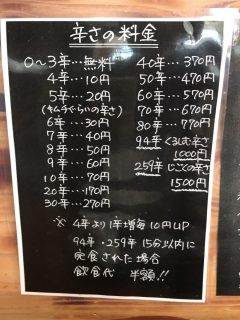 辛さの料金
0～3辛…無料
4辛…10円
5辛…20円
(キムチぐらいの辛さ)
6辛…30円
7辛…40円
8辛…50円
9辛…60円
10辛…70円
20辛…170円
30辛…270円
40辛…370円
50辛…470円
60辛…570円
70辛…670円
80辛…770円
94辛 くるしむ辛さ
1000円
259辛 じごくの辛さ
1500円
※ 4辛より1辛増毎10円UP
94辛・259辛 15分以内に
完食された場合
飲食代 半額!!